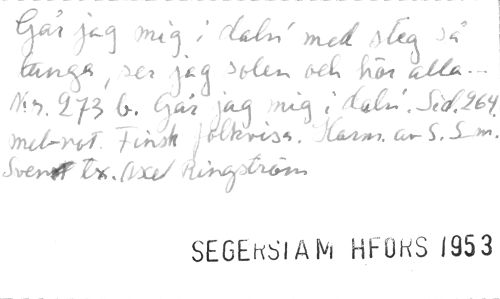 Går jag mig i daln' med steg så
tunga, ser jag solen och hör alla...
N:r. 273 b. Går jag mig i daln'. Sid. 264,
mel-not. Finsk folkvisa. Harm. av S. S-m.
Svensk tx. Axel Ringström
SEGERSTAM HFORS 1953